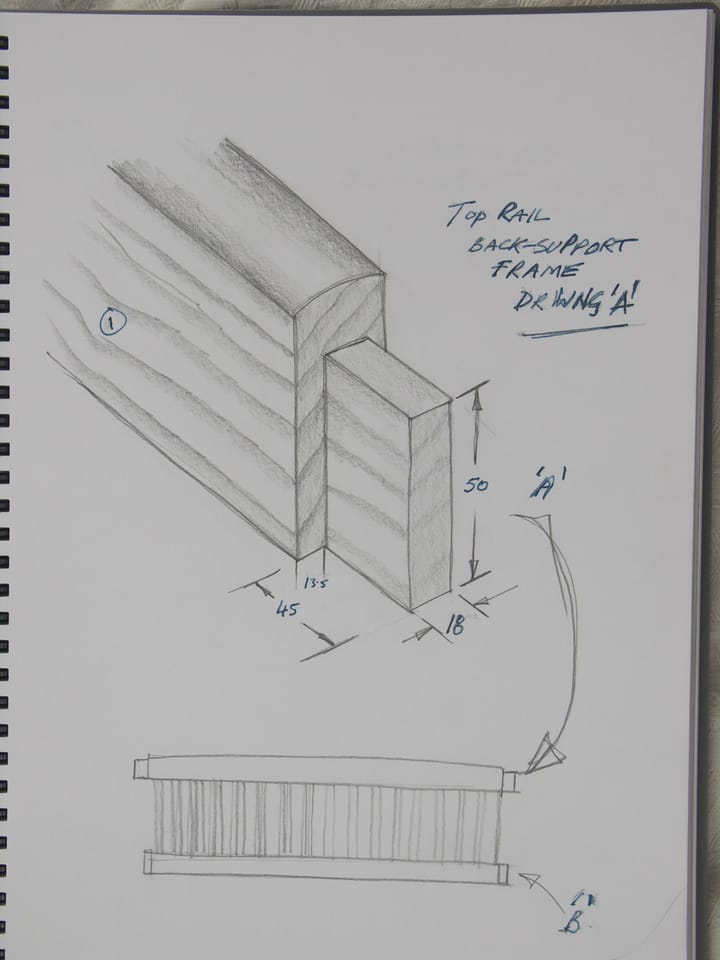 Top RAIL
BACK-SUPPORT
FRAME
DRWNG 'A'
1
50
'A'
13.5
45
18
B.